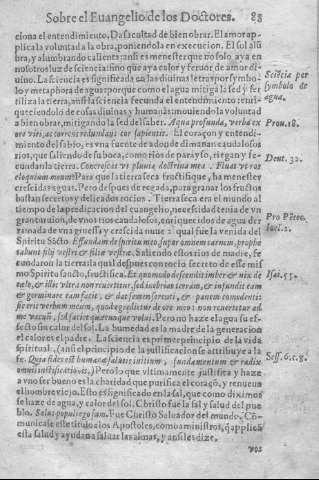 Sobre el Euangelio de los Doctores. 88
ciona el entendimiento. Da facultad de bien obrar. El amor ap-
plica la voluntad a la obra, poniendola en execucion. El sol alũ
bra, y alumbrando calienta: ansi es menester que no solo aya en
nosotros luz de sciencia: sino que aya calor y feruor de amor di-
uino. La sciencia es significada en las diuinas letras por symbo-
lo y metaphora de agua: porque como el agua mitiga la sed y fer
tiliza la tierra, ansi la sciencia fecunda el entendimiento: 
 de cosas diuinas y humanas: mouiendo la volun-
ta a bien obrar, mitigando la sed del saber. Aqua profunda, verba ex
ore viri, ac torrens redundans cor sapientis. El coraçon y entendi-
miento del sabio, es vna fuente de adonde dimanan caudalosos
rios, que saliendo de su boca, como rios de parayso, riegan y fe-
cundan la tierra. Concrescat vt pluuia doctrina mea. Fluat vt ros
eloquium meum. Para que la tierra seca fructifique, ha menester
crescidas aguas. Pero despues de regada, para granar los fructos
bastan secretos y delicados rocios. Tierra seca era el mundo al
tiempo de la predicacion del euangelio, necesidad tenia de vn
gran turuion, de vnos rios caudalosos, enriquecidos de agua der
ramada de vna gruessa y crescida nuue: qual fue la venida del
Spiritu Sãcto. Effundam de spiritu meo super omnem carnem, prophe
tabunt filij vestri & filiæ vestræ. Saliendo estos rios de madre, fe
cundaron la tierra: la qual despues con 
mo Spiritu sancto, fructifica. Et quomodo descendit imber & nix de
cælo, & illuc vltra non reuertitur, sed inebriat terram, & infundit eam
& germinare eam facit, & dat semen serenti, & panem comedenti:
sic erit verbum meum, quod egredietur de ore meo: non reuertetur ad
me vacuũ, sed faciet quæcunque volui. Pero no haze el agua su ef-
fecto sin calor del sol. La humedad es la madre de la generacion
el calor es el padre. La sciencia es primer principio de la vida
spiritual, (ansi el principio de la justificacion se attribuye a la
fe. Quia fides est humanæ salutis initium, fundamentum & radix
omnis iustificationis.) Pero lo que vltimamente justifica y haze
a vno ser bueno es la charidad que purifica el coraçõ, y renueua
el hombre viejo. Esto es significado en la sal, que como diximos
se haze de agua, y calor del sol. Christo fue la sal y salud del pue
blo. Salus populi ego sum. Fue Christo Saluador del mundo. Cõ-
municase este titulo a los Apostoles, como a ministros, q̃ applicã
esta salud y ayudan a saluar las almas, y ansi les dize,
vos
Sciẽcia por
symbolo de
agua.
Prou. 18.
Deut. 32.
Ioel. 2.
Isai. 55.
Sess. 6. c. 8.